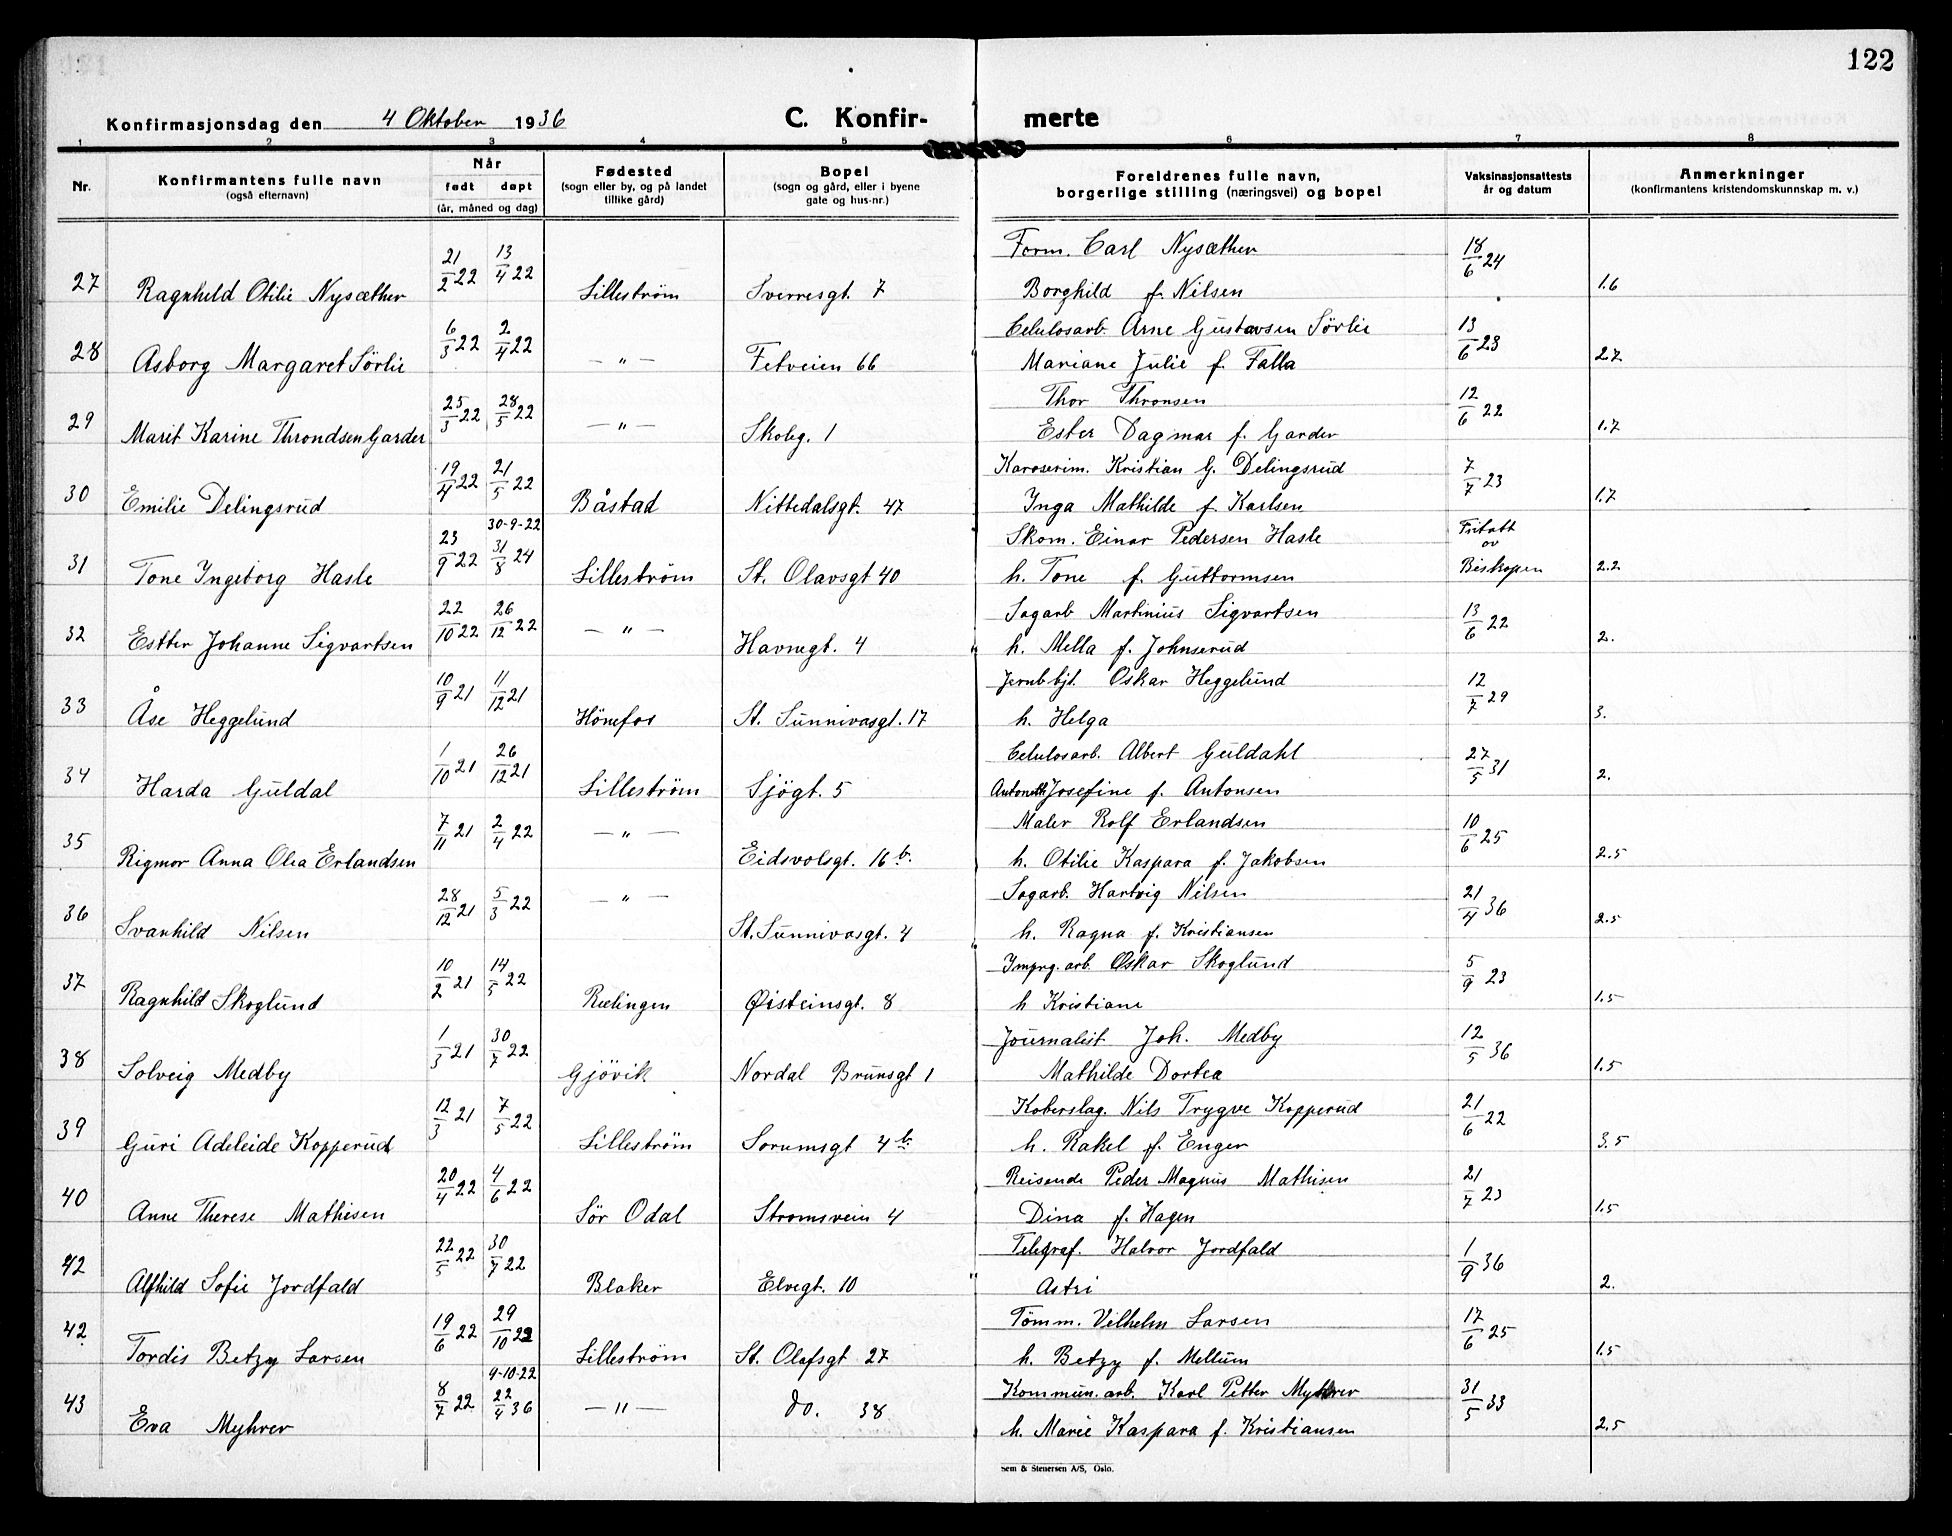 122
Konfirmasjonsdag den 4 Oktober 1936 C. Konfir- merte
1 2 3 4 5 6 7 8
Nr. Konfirmantens fulle navn (også efternavn) Når født døpt (år, måned og dag) Fødested (sogn eller by, og på landet tillike gård) Bopel (sogn og gård, eller i byene gate og hus-nr.) Foreldrenes fulle navn, borgerlige stilling (næringsvei) og bopel Vaksinasjonsattests år og datum Anmerkninger (konfirmantens kristendomskunnskap m. v.)
Form. Carl Nysæther
27 Ragnhild Otilie Nysæther 21/2 22 13/4 22 Lilleström Sverresgt. 7 Borghild f. Nilsen 18/6 24 1.6
Celulosarb. Arne Gustavsen Sörlie
28 Asborg Margaret Sörlie 6/3 22 2/4 22 — " — Fetveien 66 Mariane Julie f. Falla 13/6 23 2.7
Thor Thronsen
29 Marit Karine Throndsen Garder 25/3 22 28/5 22 — " — Skoleg. 1 Ester Dagmar f. Garder 12/6 22 1.7
Karoserim. Kristian G. Delingsrud
30 Emilie Delingsrud 19/4 22 21/5 22 Båstad Nittedalsgt. 47 Inga Mathilde f. Karlsen 7/7 23 1.7
30-9-22 Skom. Einar Pedersen Hasle Fritatt av
31 Tone Ingeborg Hasle 23/9 22 31/8 24 Lilleström St. Olavsgt 40 h. Tone f. Guttormsen Biskopen 2.2
Sagarb Martinius Sigvartsen
32 Estter Johanne Sigvartsen 22/10 22 26/12 22 — " — Havnegt. 4 h. Mella f. Johnserud 13/6 22 2.
Jernb.bjt. Oskar Heggelund
33 Åse Heggelund 10/9 21 11/12 21 Hönefos St. Sunnivasgt. 17 h. Helga 12/7 29 3.
Celulosarb. Albert Guldahl
34 Harda Guldal 1/10 21 26/12 21 Lilleström Sjögt. 5 Antonette Josefine f. Antonsen 27/5 31 2.
Maler Rolf Erlandsen
35 Rigmor Anna Olea Erlandsen 7/11 21 2/4 22 — " — Eidsvolsgt. 16 b. h. Otilie Kaspara f. Jakobsen 10/6 25 2.5
Sagarb. Hartvig Nilsen
36 Svanhild Nilsen 28/12 21 5/3 22 — " — St. Sunnivasgt. 4 h. Ragna f. Kristiansen 21/4 36 2.5
Imprg. arb. Oskar Skoglund
37 Ragnhild Skoglund 10/2 21 14/5 22 Rælingen Øisteinsgt. 8 h Kristiane 5/9 23 1.5
Journalist Joh. Medby
38 Solveig Medby 1/3 21 30/7 22 Gjövik Nordal Brunsgt 1 Mathilde Dortea 12/5 36 1.5
Koberslag. Nils Trygve Kopperud
39 Guri Adeleide Kopperud 12/3 21 7/5 22 Lilleström Sorumsgt 4 b. h. Rakel f. Enger 21/6 22 3.5
Reisende Peder Magnus Mathisen
40 Anne Therese Mathisen 20/4 22 4/6 22 Sör Odal Stromsvein 4 Dina f. Hagen 21/7 23 1.5
Telegraf. Halvor Jordfald
42 Alfhild Sofie Jordfald 22/5 22 30/7 22 Blaker Elvegt. 10 Astri 1/9 36 2.
Tömm. Vilhelm Larsen
42 Tordis Betzy Larsen 19/6 22 29/10 22 Lilleström St. Olafsgt 27 h. Betzy f. Mellum 17/6 25 1.5
9-10-22 Kommun. arb. Karl Petter Myhrer
43 Eva Myhrer 8/7 22 22/4 36 — " — Do. 38 h. Marie Kaspara f. Kristiansen 31/5 33 2.5
Sem & Stenersen A/S, Oslo.